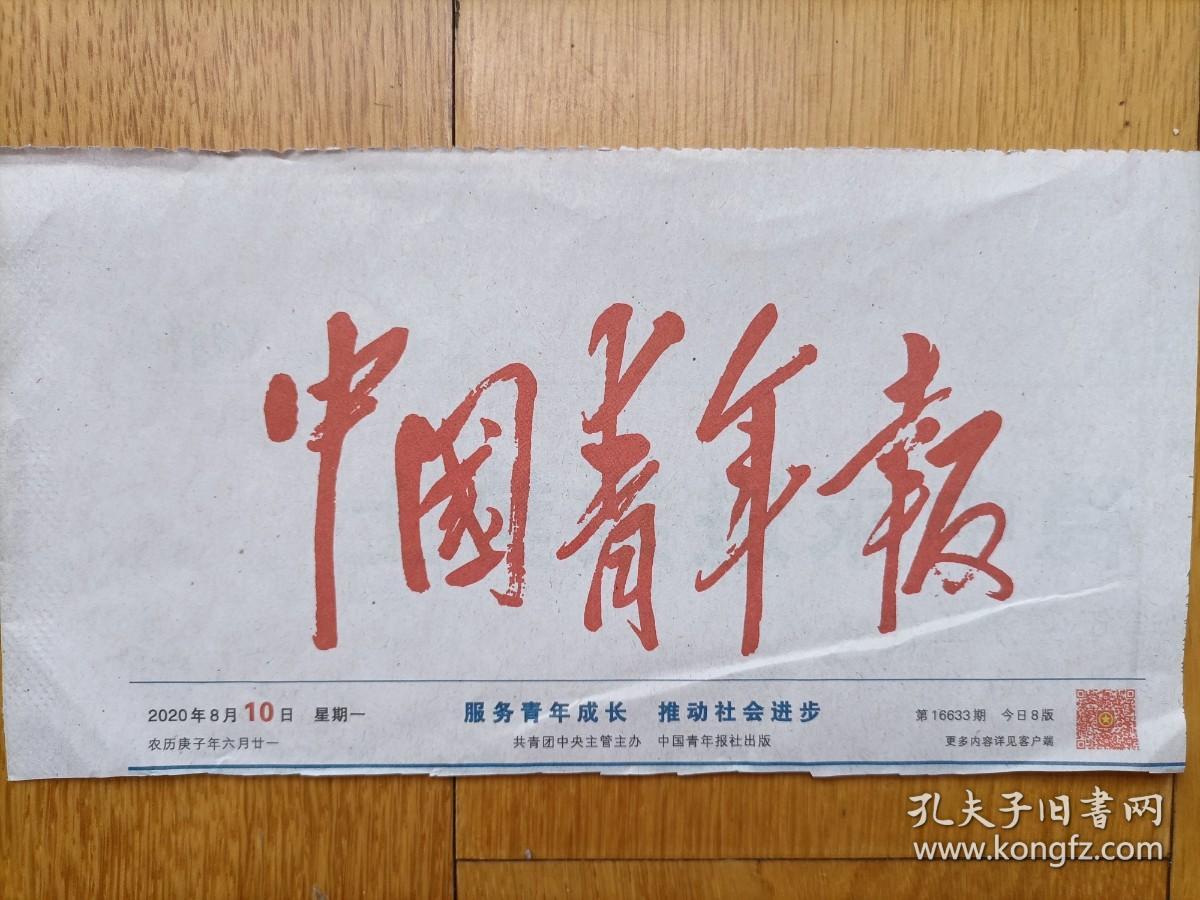 中國青年報
2020年8月10日 星期一
农历庚子年六月廿一
服务青年成长 推动社会进步
共青团中央主管主办 中国青年报社出版
第16633期 今日8版
更多内容详见客户端
孔夫子旧書网
www.kongfz.com